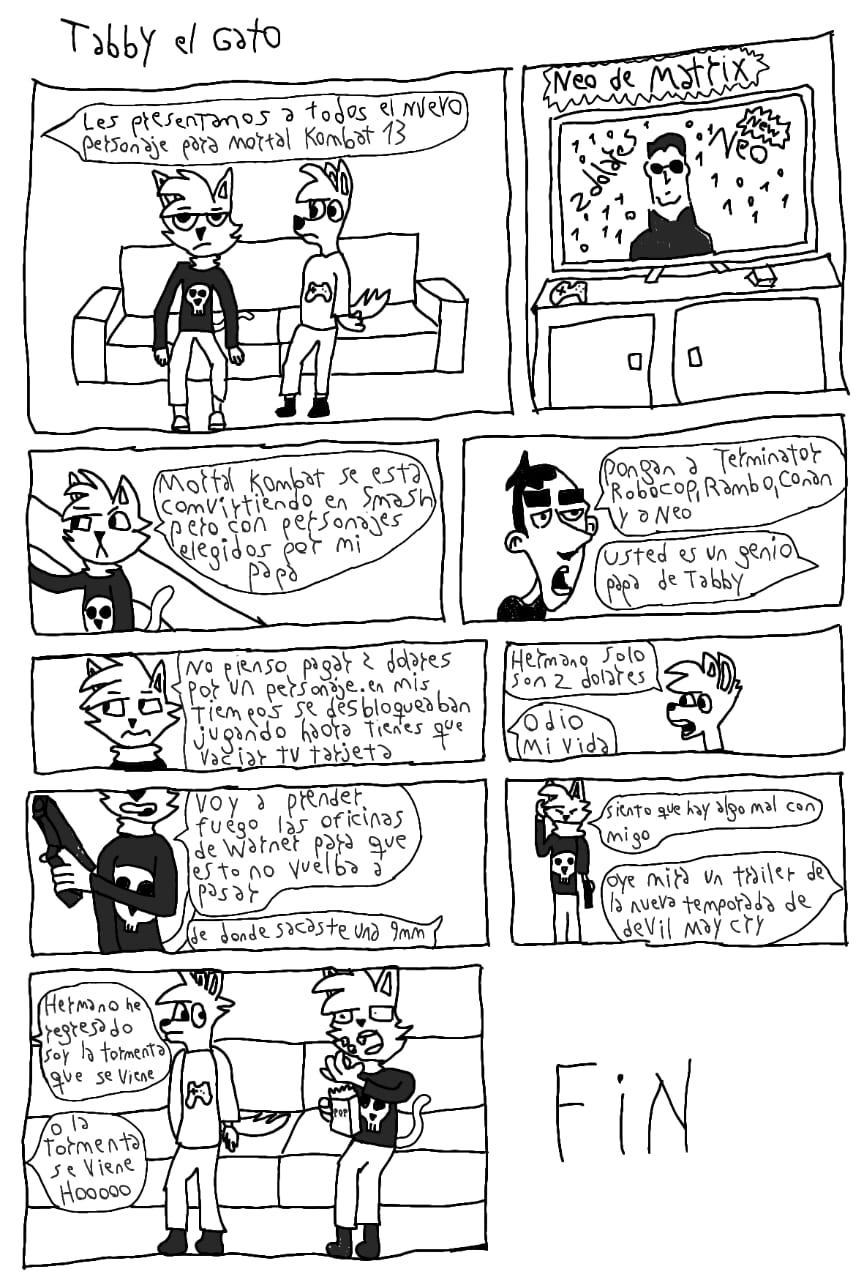 Tabby el Gato
Les presentanos a todos el nuevo
personaje para Mortal Kombat 13
Neo de Matrix
2 dolares
New
Neo
Mortal Kombat se esta
comvirtiendo en Smash
pero con personajes
elegidos por mi
papa
pongan a Terminator
Robocop, Rambo, Conan
y a Neo
usted es un genio
papa de Tabby
No pienso pagar 2 dolares
por un personaje. en mis
tiempos se desbloqueaban
jugando haora tienes que
vaciar tu tarjeta
Hermano solo
son 2 dolares
Odio
Mi vida
voy a prender
fuego las oficinas
de Warner para que
esto no vuelba a
pasar
de donde sacaste una 9mm
siento que hay algo mal con
migo
oye mira un trailer de
la nueva temporada de
devil may cry
Hermano he
regresado
soy la tormenta
que se viene
O la
tormenta
se viene
Hooooo
POP
FiN